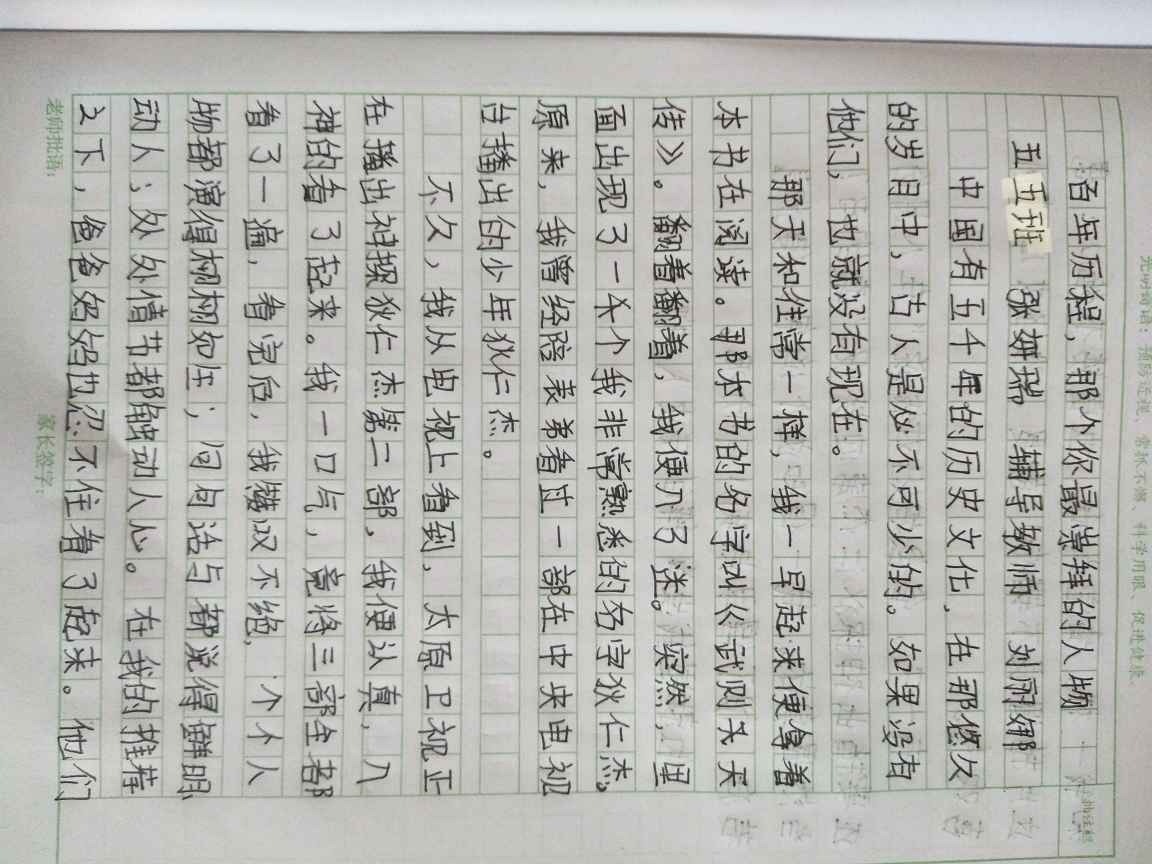 百年历程,那个你最崇拜的人物
五五班 张妍瑞 辅导教师 刘丽娜
中国有五千年的历史文化,在那悠久
的岁月中,古人是必不可少的。如果没有
他们,也就没有现在。
那天和往常一样,我一早起来便拿着
本书在阅读。那本书的名字叫《武则天
传》。翻着翻着,我便入了迷。突然,里
面出现了一个我非常熟悉的名字狄仁杰。
原来,我曾经陪表弟看过一部在中央电视
台播出的少年狄仁杰。
不久,我从电视上看到,太原卫视正
在播出神探狄仁杰第二部。我便认真,入
神的看了起来。我一口气,竟将三部全都
看了一遍,看完后,我赞叹不绝,个个人
物都演得栩栩如生;句句话与都说得鲜明
动人;处处情节都触动人心。在我的推荐
之下,爸爸妈妈也忍不住看了起来。他们
老师批语:
家长签字: